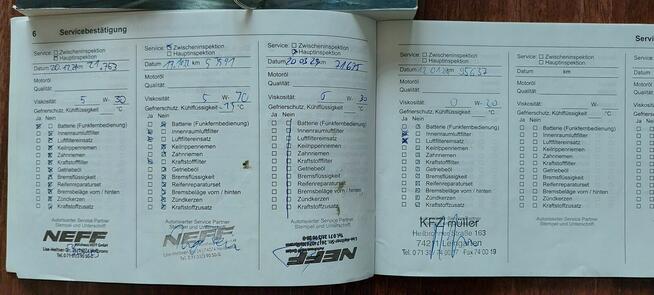 6 Servicebestätigung
Service: Zwischeninspektion
Hauptinspektion
Datum km 21.763
Motoröl
Qualität
Viskosität: 5 W- 30
Gefrierschutz, Kühlflüssigkeit °C
Ja Nein
Batterie (Funkfernbedienung)
Innenraumluftfilter
Luftfiltereinsatz
Keilrippenriemen
Zahnriemen
Kraftstofffilter
Getriebeöl
Bremsflüssigkeit
Reifenreparaturset
Bremsbeläge vorn / hinten
Zündkerzen
Kraftstoffzusatz
Autorisierter Service Partner
Stempel und Unterschrift
NEFF
Service: Zwischeninspektion
Hauptinspektion
Datum km
Motoröl
Qualität
Viskosität: 5 W-
Gefrierschutz, Kühlflüssigkeit °C
Ja Nein
Batterie (Funkfernbedienung)
Innenraumluftfilter
Luftfiltereinsatz
Keilrippenriemen
Zahnriemen
Kraftstofffilter
Getriebeöl
Bremsflüssigkeit
Reifenreparaturset
Bremsbeläge vorn / hinten
Zündkerzen
Kraftstoffzusatz
Autorisierter Service Partner
Stempel und Unterschrift
NEFF
Service: Zwischeninspektion
Hauptinspektion
Datum
Motoröl
Qualität
Viskosität: W- 30
Gefrierschutz, Kühlflüssigkeit °C
Ja Nein
Batterie (Funkfernbedienung)
Innenraumluftfilter
Luftfiltereinsatz
Keilrippenriemen
Zahnriemen
Kraftstofffilter
Getriebeöl
Bremsflüssigkeit
Reifenreparaturset
Bremsbeläge vorn / hinten
Zündkerzen
Kraftstoffzusatz
Autorisierter Service Partner
Stempel und Unterschrift
NEFF
Service: Zwischeninspektion
Hauptinspektion
Datum km 95637
Motoröl
Qualität
Viskosität: 0 W- 20
Gefrierschutz, Kühlflüssigkeit °C
Ja Nein
Batterie (Funkfernbedienung)
Innenraumluftfilter
Luftfiltereinsatz
Keilrippenriemen
Zahnriemen
Kraftstofffilter
Getriebeöl
Bremsflüssigkeit
Reifenreparaturset
Bremsbeläge vorn / hinten
Zündkerzen
Kraftstoffzusatz
Autorisierter Service Partner
Stempel und Unterschrift
KFZ müller
Heilbronner Straße 163
74211 Leingarten
Fax 74 00 19
Service: Zwischeninspektion
Hauptinspektion
Datum km
Motoröl
Qualität
Viskosität: W-
Gefrierschutz, Kühlflüssigkeit °C
Ja Nein
Batterie (Funkfernbedienung)
Innenraumluftfilter
Luftfiltereinsatz
Keilrippenriemen
Zahnriemen
Kraftstofffilter
Getriebeöl
Bremsflüssigkeit
Reifenreparaturset
Bremsbeläge vorn / hinten
Zündkerzen
Kraftstoffzusatz
Autorisierter Service Partner
Stempel und Unterschrift